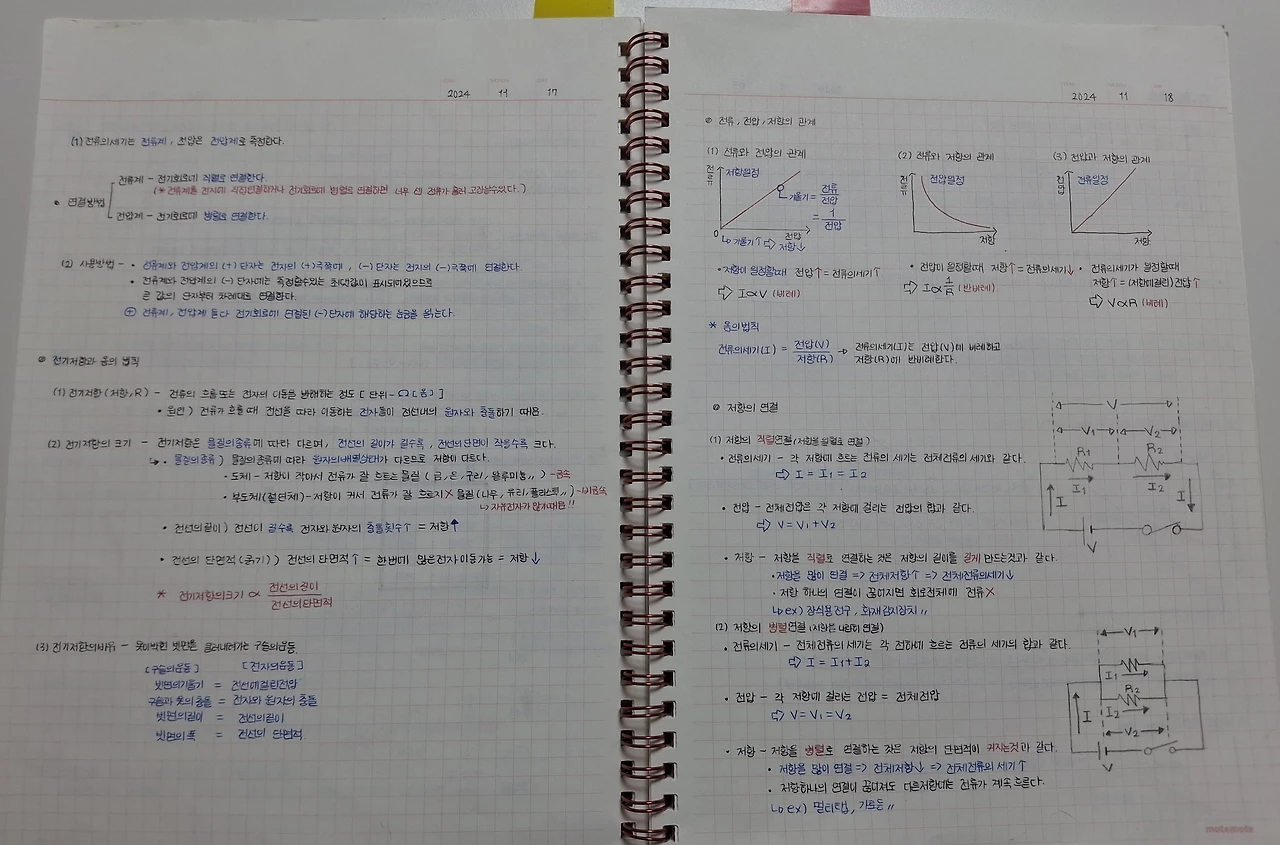 2024 11 17
(1) 전류의세기는 전류계, 전압은 전압계로 측정한다.
• 연결방법
전류계 - 전기회로에 직렬로 연결한다.
(* 전류계를 전지에 직접연결하거나 전기회로에 병렬로 연결하면 너무 센 전류가 흘러 고장날수있다.)
전압계 - 전기회로에 병렬로 연결한다.
(2) 사용방법 - • 전류계와 전압계의 (+) 단자는 전지의 (+)극쪽에, (-) 단자는 전지의 (-)극쪽에 연결한다.
• 전류계와 전압계의 (-) 단자에는 측정할수있는 최댓값이 표시되어있으므로
큰 값의 단자부터 차례대로 연결한다.
⊕ 전류계, 전압계 둘다 전기회로에 연결된 (-)단자에 해당하는 눈금을 읽는다.
◎ 전기저항과 옴의 법칙
(1) 전기저항 (저항, R) - 전류의 흐름 또는 전자의 이동을 방해하는 정도 [단위 - Ω [옴]]
• 원인) 전류가 흐를 때 전선을 따라 이동하는 전자들이 전선내의 원자와 충돌하기 때문.
(2) 전기저항의 크기 - 전기저항은 물질의종류에 따라 다르며, 전선의 길이가 길수록, 전선의단면이 작을수록 크다.
↳ • 물질의종류) 물질의종류에 따라 원자의배열상태가 다르므로 저항이 다르다.
• 도체 - 저항이 작아서 전류가 잘 흐르는 물질 (금, 은, 구리, 알루미늄,,) - 금속
• 부도체(절연체) - 저항이 커서 전류가 잘 흐르지X 물질 (나무, 유리, 플라스틱,,) - 비금속
↳ 자유전자가 많기때문!!
• 전선의길이) 전선이 길수록 전자와 원자의 충돌횟수↑ = 저항↑
• 전선의 단면적 (굵기)) 전선의 단면적↑ = 한번에 많은전자 이동가능 = 저항↓
* 전기저항의크기 ∝ 전선의길이/전선의단면적
(3) 전기저항의비유 - 못이박힌 빗면을 굴러내려가는 구슬의운동.
[구슬의운동] [전자의운동]
빗면의기울기 = 전선에걸린전압
구슬과 못의 충돌 = 전자와 원자의 충돌
빗면의길이 = 전선의길이
빗면의폭 = 전선의 단면적
2024 11 18
◎ 전류, 전압, 저항의 관계
(1) 전류와 전압의 관계
전류
저항일정
기울기 = 전류/전압
= 1/전압
0
전압
↳ 기울기↑ ⇨ 저항↓
• 저항이 일정할때 전압↑ = 전류의세기↑
⇨ I∝V (비례)
(2) 전류와 저항의 관계
전류
전압일정
저항
• 전압이 일정할때 저항↑ = 전류의세기↓
⇨ I∝1/R (반비례)
(3) 전압과 저항의 관계
전압
전류일정
저항
• 전류의세기가 일정할때
저항↑ = (저항에걸린)전압↑
⇨ V∝R (비례)
* 옴의법칙
전류의세기(I) = 전압(V)/저항(R) → 전류의세기(I)는 전압(V)에 비례하고
저항(R)에 반비례한다.
◎ 저항의 연결
(1) 저항의 직렬연결 (저항을 일렬로 연결)
• 전류의세기 - 각 저항에 흐르는 전류의 세기는 전체전류의 세기와 같다.
⇨ I = I1 = I2
• 전압 - 전체전압은 각 저항에 걸리는 전압의 합과 같다.
⇨ V = V1 + V2
• 저항 - 저항을 직렬로 연결하는 것은 저항의 길이를 길게 만드는것과 같다.
• 저항을 많이 연결 => 전체저항↑ => 전체전류의세기↓
• 저항 하나의 연결이 끊어지면 회로전체에 전류X
↳ ex) 장식용전구, 화재감지장치 ,,
V
V1 V2
R1 R2
I1 I2
I I
V
(2) 저항의 병렬연결 (저항을 나란히 연결)
• 전류의세기 - 전체전류의 세기는 각 저항에 흐르는 전류의 세기의 합과 같다.
⇨ I = I1 + I2
• 전압 - 각 저항에 걸리는 전압 = 전체전압
⇨ V = V1 = V2
• 저항 - 저항을 병렬로 연결하는 것은 저항의 단면적이 커지는것과 같다.
• 저항을 많이 연결 => 전체저항↓ => 전체전류의 세기↑
• 저항하나의 연결이 끊어져도 다른저항에는 전류가 계속 흐른다.
↳ ex) 멀티탭, 가로등 ,,
V1
I1
R2
I2
I
V2
V
motemote